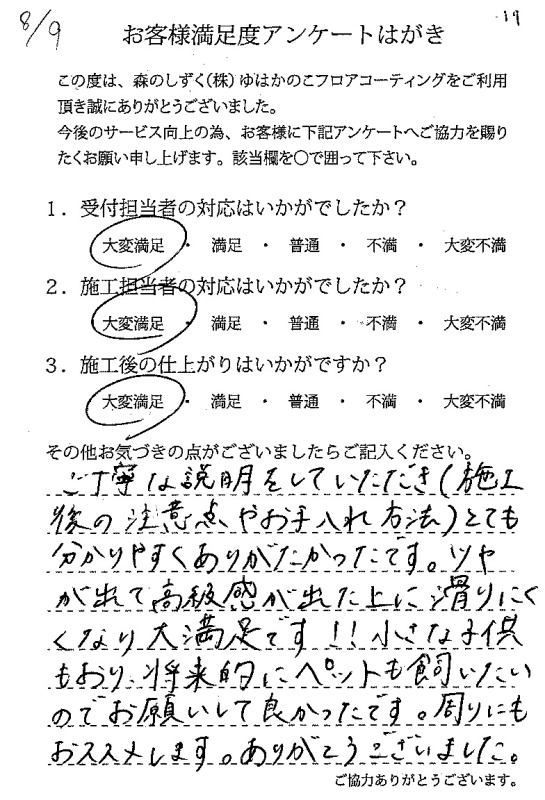 8/9
19
お客様満足度アンケートはがき
この度は、森のしずく(株)ゆはかのこフロアコーティングをご利用
頂き誠にありがとうございました。
今後のサービス向上の為、お客様に下記アンケートへご協力を賜り
たくお願い申し上げます。該当欄を〇で囲って下さい。
1．受付担当者の対応はいかがでしたか？
大変満足 ・ 満足 ・ 普通 ・ 不満 ・ 大変不満
2．施工担当者の対応はいかがでしたか？
大変満足 ・ 満足 ・ 普通 ・ 不満 ・ 大変不満
3．施工後の仕上がりはいかがですか？
大変満足 ・ 満足 ・ 普通 ・ 不満 ・ 大変不満
その他お気づきの点がございましたらご記入ください。
ご丁寧な説明をしていただき(施工
後の注意点やお手入れ方法)とても
分かりやすくありがたかったです。ツヤ
が出て高級感が出た上に滑りにく
くなり大満足です!!小さな子供
もおり、将来的にペットも飼いたい
のでお願いして良かったです。周りにも
おススメします。ありがとうございました。
ご協力ありがとうございます。